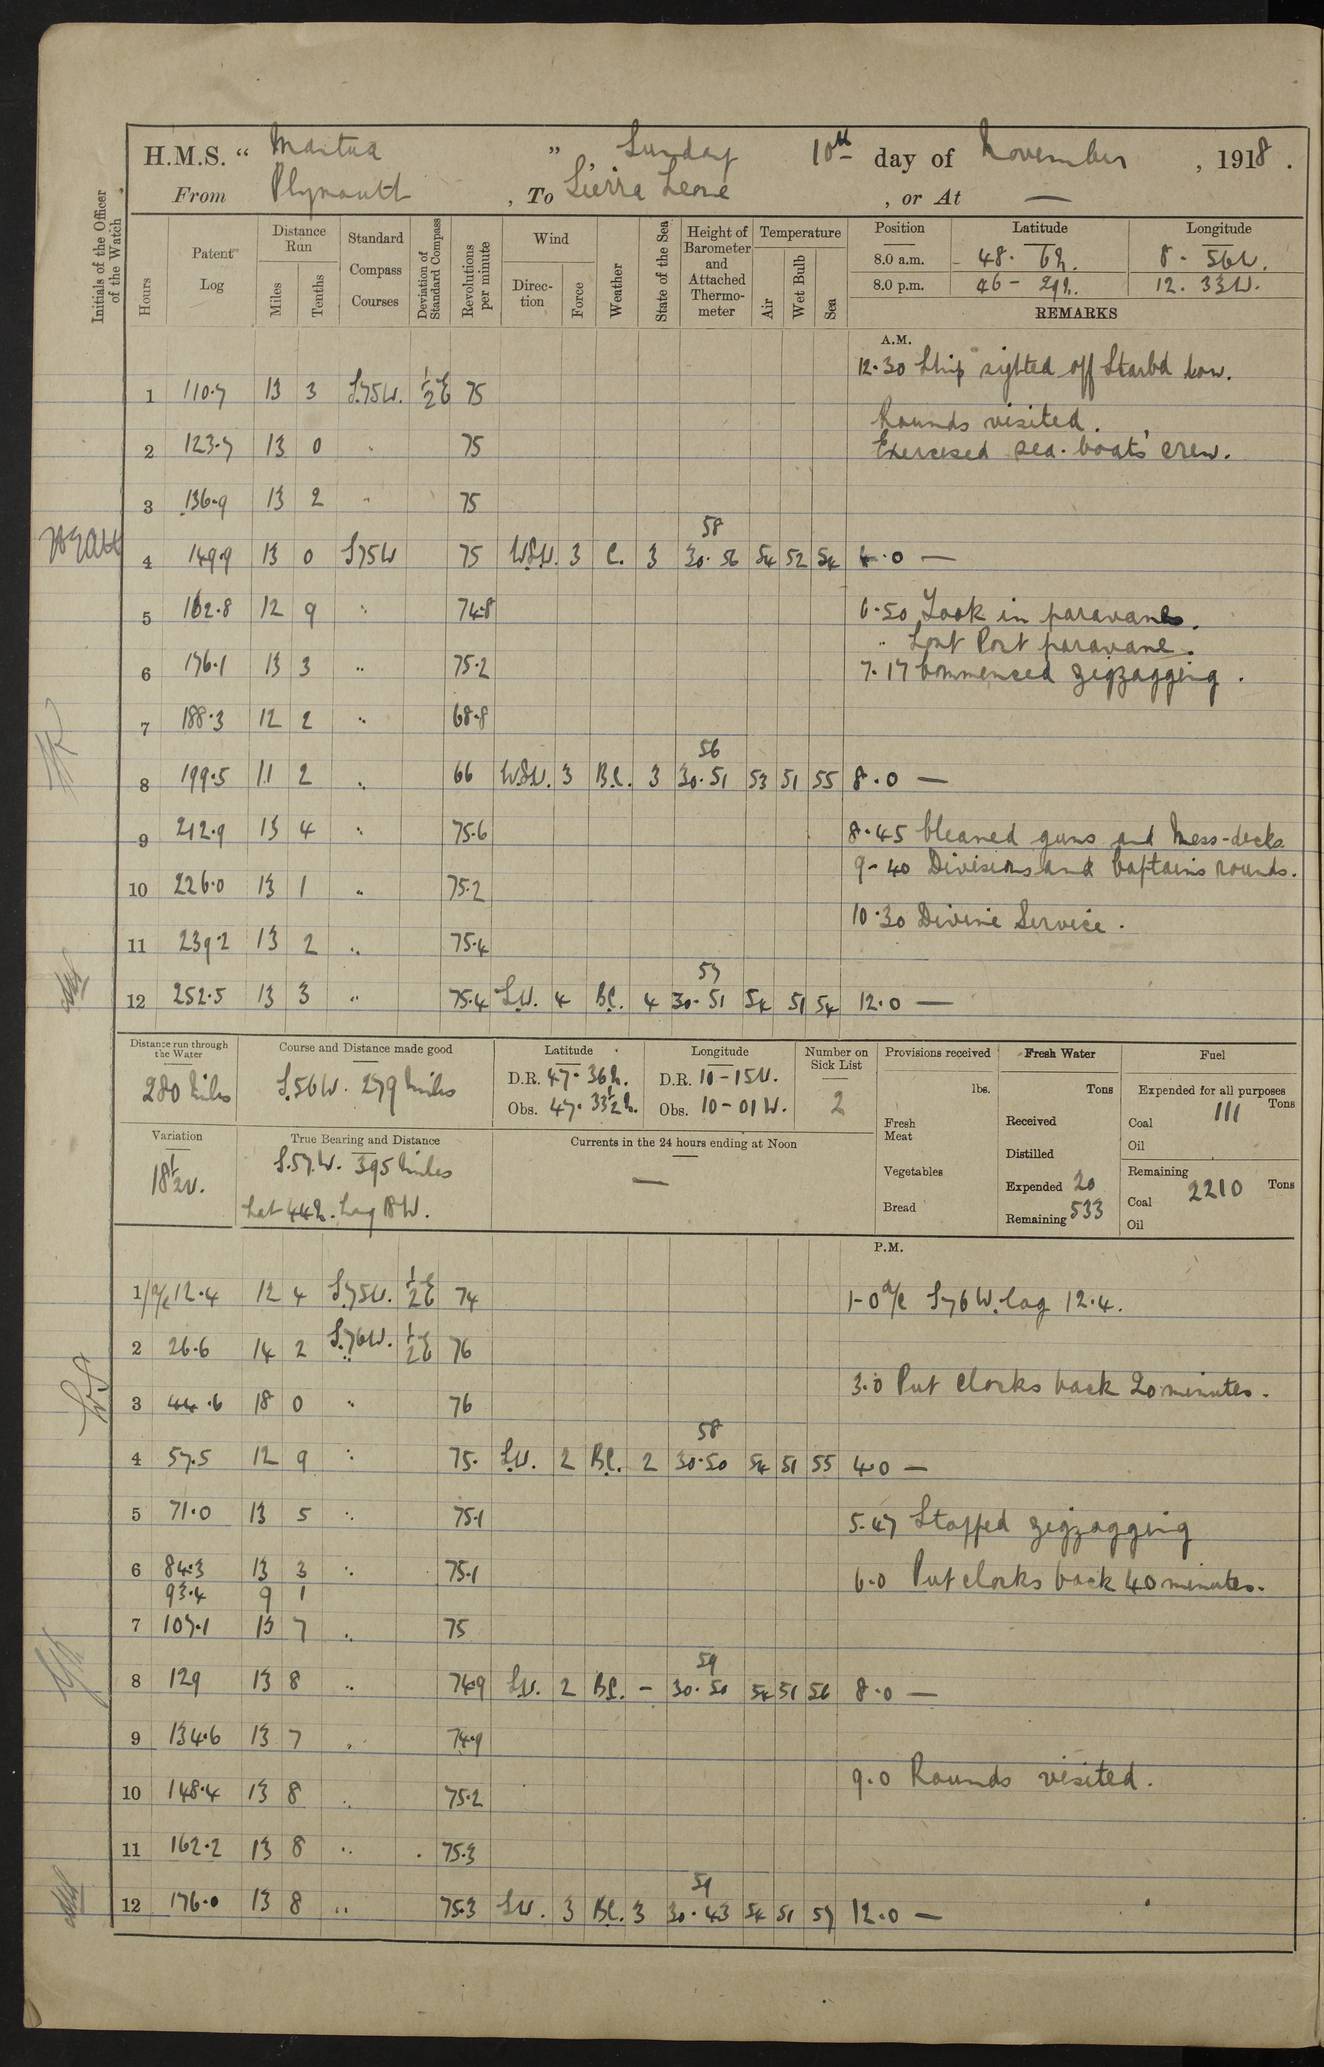 H.M.S. “ Mantua ”, Sunday 10th day of November, 1918.
From Plymouth, To Sierra Leone, or At —
Initials of the Officer of the Watch
Hours
Patent Log
Distance Run
Miles Tenths
Standard Compass Courses
Deviation of Standard Compass
Revolutions per minute
Wind
Direction Force
Weather
State of the Sea
Height of Barometer and Attached Thermometer
Temperature
Air Wet Bulb Sea
Position Latitude Longitude
8.0 a.m. 48 · 6N. 8 · 56W.
8.0 p.m. 46 - 29N. 12. 33W.
REMARKS
A.M.
12.30 Ship sighted off Starbd bow.
1 110.7 13 3 S.75W. ½E 75
Rounds visited.
2 123.7 13 0 " 75 Exercised sea-boats' crew.
3 136.9 13 2 " 75
58
4 149.9 13 0 S75W 75 WSW. 3 C. 3 30.56 54 52 54 4.0 —
5 162.8 12 9 " 74.8 6.50 Took in paravanes.
" Lost Port paravane.
6 176.1 13 3 " 75.2 7.17 Commenced zigzagging.
7 188.3 12 2 " 68.8
56
8 199.5 11 2 " 66 WSW. 3 BC. 3 30.51 53 51 55 8.0 —
9 212.9 13 4 " 75.6 8.45 Cleaned guns and Mess-decks
9-40 Divisions and Captain's rounds.
10 226.0 13 1 " 75.2
10.30 Divine Service.
11 239.2 13 2 " 75.4
57
12 252.5 13 3 " 75.4 SW. 4 BC. 4 30.51 54 51 54 12.0 —
Distance run through the Water
280 Miles
Course and Distance made good
S.56W. 279 Miles
Latitude
D.R. 47. 36N.
Obs. 47. 33½N.
Longitude
D.R. 10-15W.
Obs. 10-01W.
Number on Sick List
2
Provisions received
lbs.
Fresh Meat
Vegetables
Bread
Fresh Water
Tons
Received
Distilled
Expended 20
Remaining 533
Fuel
Expended for all purposes
Coal 111 Tons
Oil
Remaining
Coal 2210 Tons
Oil
Variation
18½W.
True Bearing and Distance
S.57.W. 395 Miles
Lat 44N. Long 18W.
Currents in the 24 hours ending at Noon
—
P.M.
1/a/c 12.4 12 4 S.75W. ½E 74 1-0 a/c S76W. log 12.4.
2 26.6 14 2 S.76W. ½E 76
3.0 Put clocks back 20 minutes.
3 44.6 18 0 " 76
58
4 57.5 12 9 " 75. SW. 2 BC. 2 30.50 54 51 55 4.0 —
5 71.0 13 5 " 75.1 5.47 Stopped zigzagging
6 84.3 13 3 " 75.1 6.0 Put clocks back 40 minutes.
93.4 9 1
7 107.1 13 7 " 75
59
8 129 13 8 " 74.9 SW. 2 BC. — 30.50 54 51 56 8.0 —
9 134.6 13 7 " 74.9
9.0 Rounds visited.
10 148.4 13 8 " 75.2
11 162.2 13 8 " 75.3
59
12 176.0 13 8 " 75.3 SW. 3 BC. 3 30.43 54 51 57 12.0 —